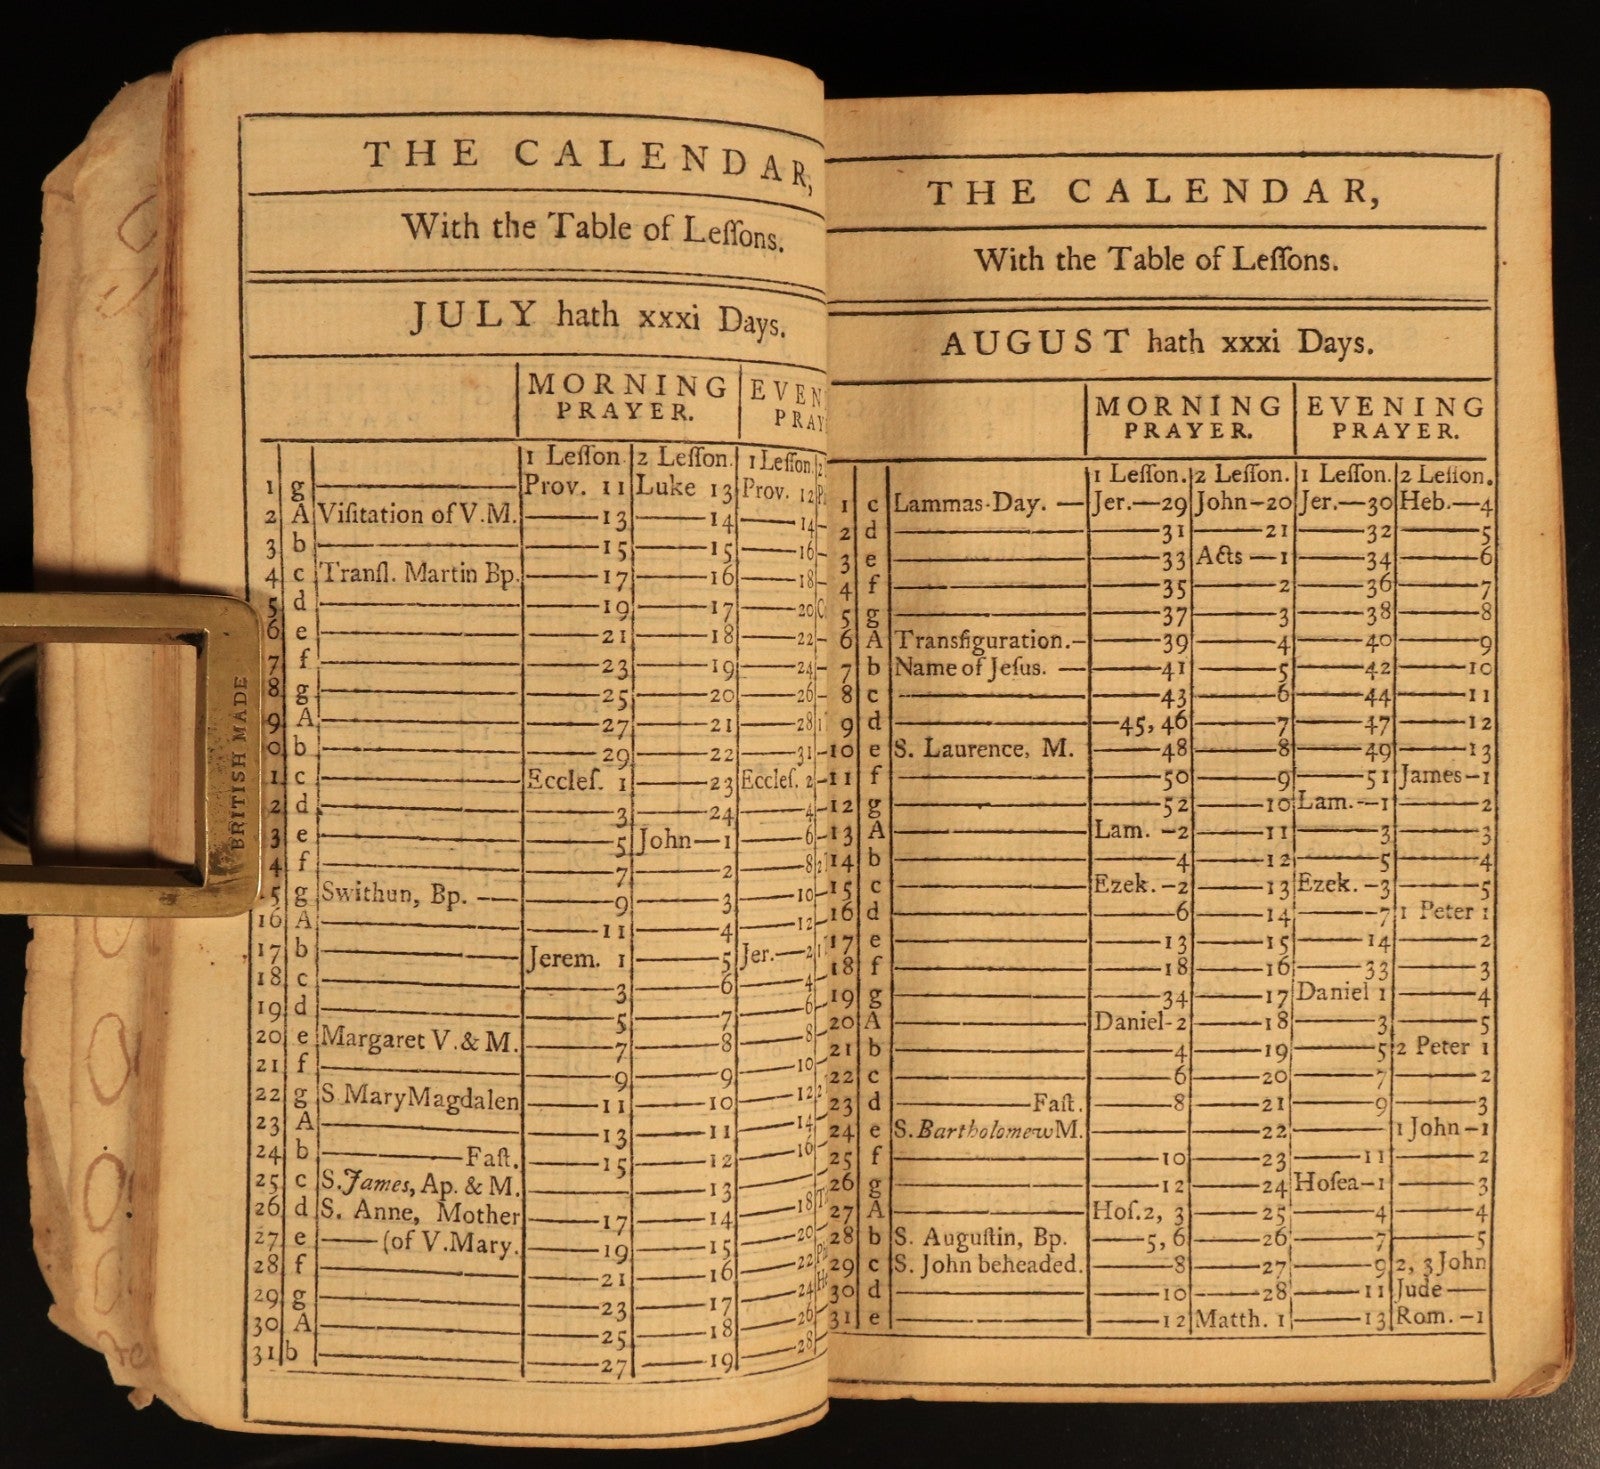 THE CALENDAR,
With the Table of Leſſons.
JULY hath xxxi Days.
MORNING PRAYER.
1 Leſſon. 2 Leſſon. 1 Leſſon.
1 g Prov. 11 Luke 13 Prov. 12
2 A Viſitation of V.M. 13 14 14
3 b 15 15 16
4 c Tranſl. Martin Bp. 17 16 18
5 d 19 17 20
6 e 21 18 22
7 f 23 19 24
8 g 25 20 26
9 A 27 21 28
0 b 29 22 31
1 c Eccleſ. 1 23 Eccleſ. 2
2 d 3 24 4
3 e 5 John 1 6
4 f 7 2 8
5 g Swithun, Bp. 9 3 10
16 A 11 4 12
17 b Jerem. 1 5 Jer. 2
18 c 3 6 4
19 d 5 7 6
20 e Margaret V. & M. 7 8 8
21 f 9 9 10
22 g S Mary Magdalen 11 10 12
23 A 13 11 14
24 b Faſt. 15 12 16
25 c S. James, Ap. & M. 13
26 d S. Anne, Mother 17 14 18
27 e (of V. Mary. 19 15 20
28 f 21 16 22
29 g 23 17 24
30 A 25 18 26
31 b 27 19 28
BRITISH MADE
THE CALENDAR,
With the Table of Leſſons.
AUGUST hath xxxi Days.
MORNING PRAYER. EVENING PRAYER.
1 Leſſon. 2 Leſſon. 1 Leſſon. 2 Leſſon.
1 c Lammas-Day. — Jer.—29 John—20 Jer.—30 Heb.—4
2 d 31 21 32 5
3 e 33 Acts — 1 34 6
4 f 35 2 36 7
5 g 37 3 38 8
6 A Transfiguration. 39 4 40 9
7 b Name of Jeſus. 41 5 42 10
8 c 43 6 44 11
9 d 45, 46 7 47 12
10 e S. Laurence, M. 48 8 49 13
11 f 50 9 51 James—1
12 g 52 10 Lam.—1 2
13 A Lam. —2 11 3 3
14 b 4 12 5 4
15 c Ezek. —2 13 Ezek. —3 5
16 d 6 14 7 1 Peter 1
17 e 13 15 14 2
18 f 18 16 33 3
19 g 34 17 Daniel 1 4
20 A Daniel-2 18 3 5
21 b 4 19 5 2 Peter 1
22 c 6 20 7 2
23 d Faſt. 8 21 9 3
24 e S. Bartholomew M. 22 1 John —1
25 f 10 23 11 2
26 g 12 24 Hoſea—1 3
27 A Hoſ. 2, 3 25 4 4
28 b S. Auguſtin, Bp. 5, 6 26 7 5
29 c S. John beheaded. 8 27 9 2, 3 John
30 d 10 28 11 Jude
31 e 12 Matth. 1 13 Rom. —1